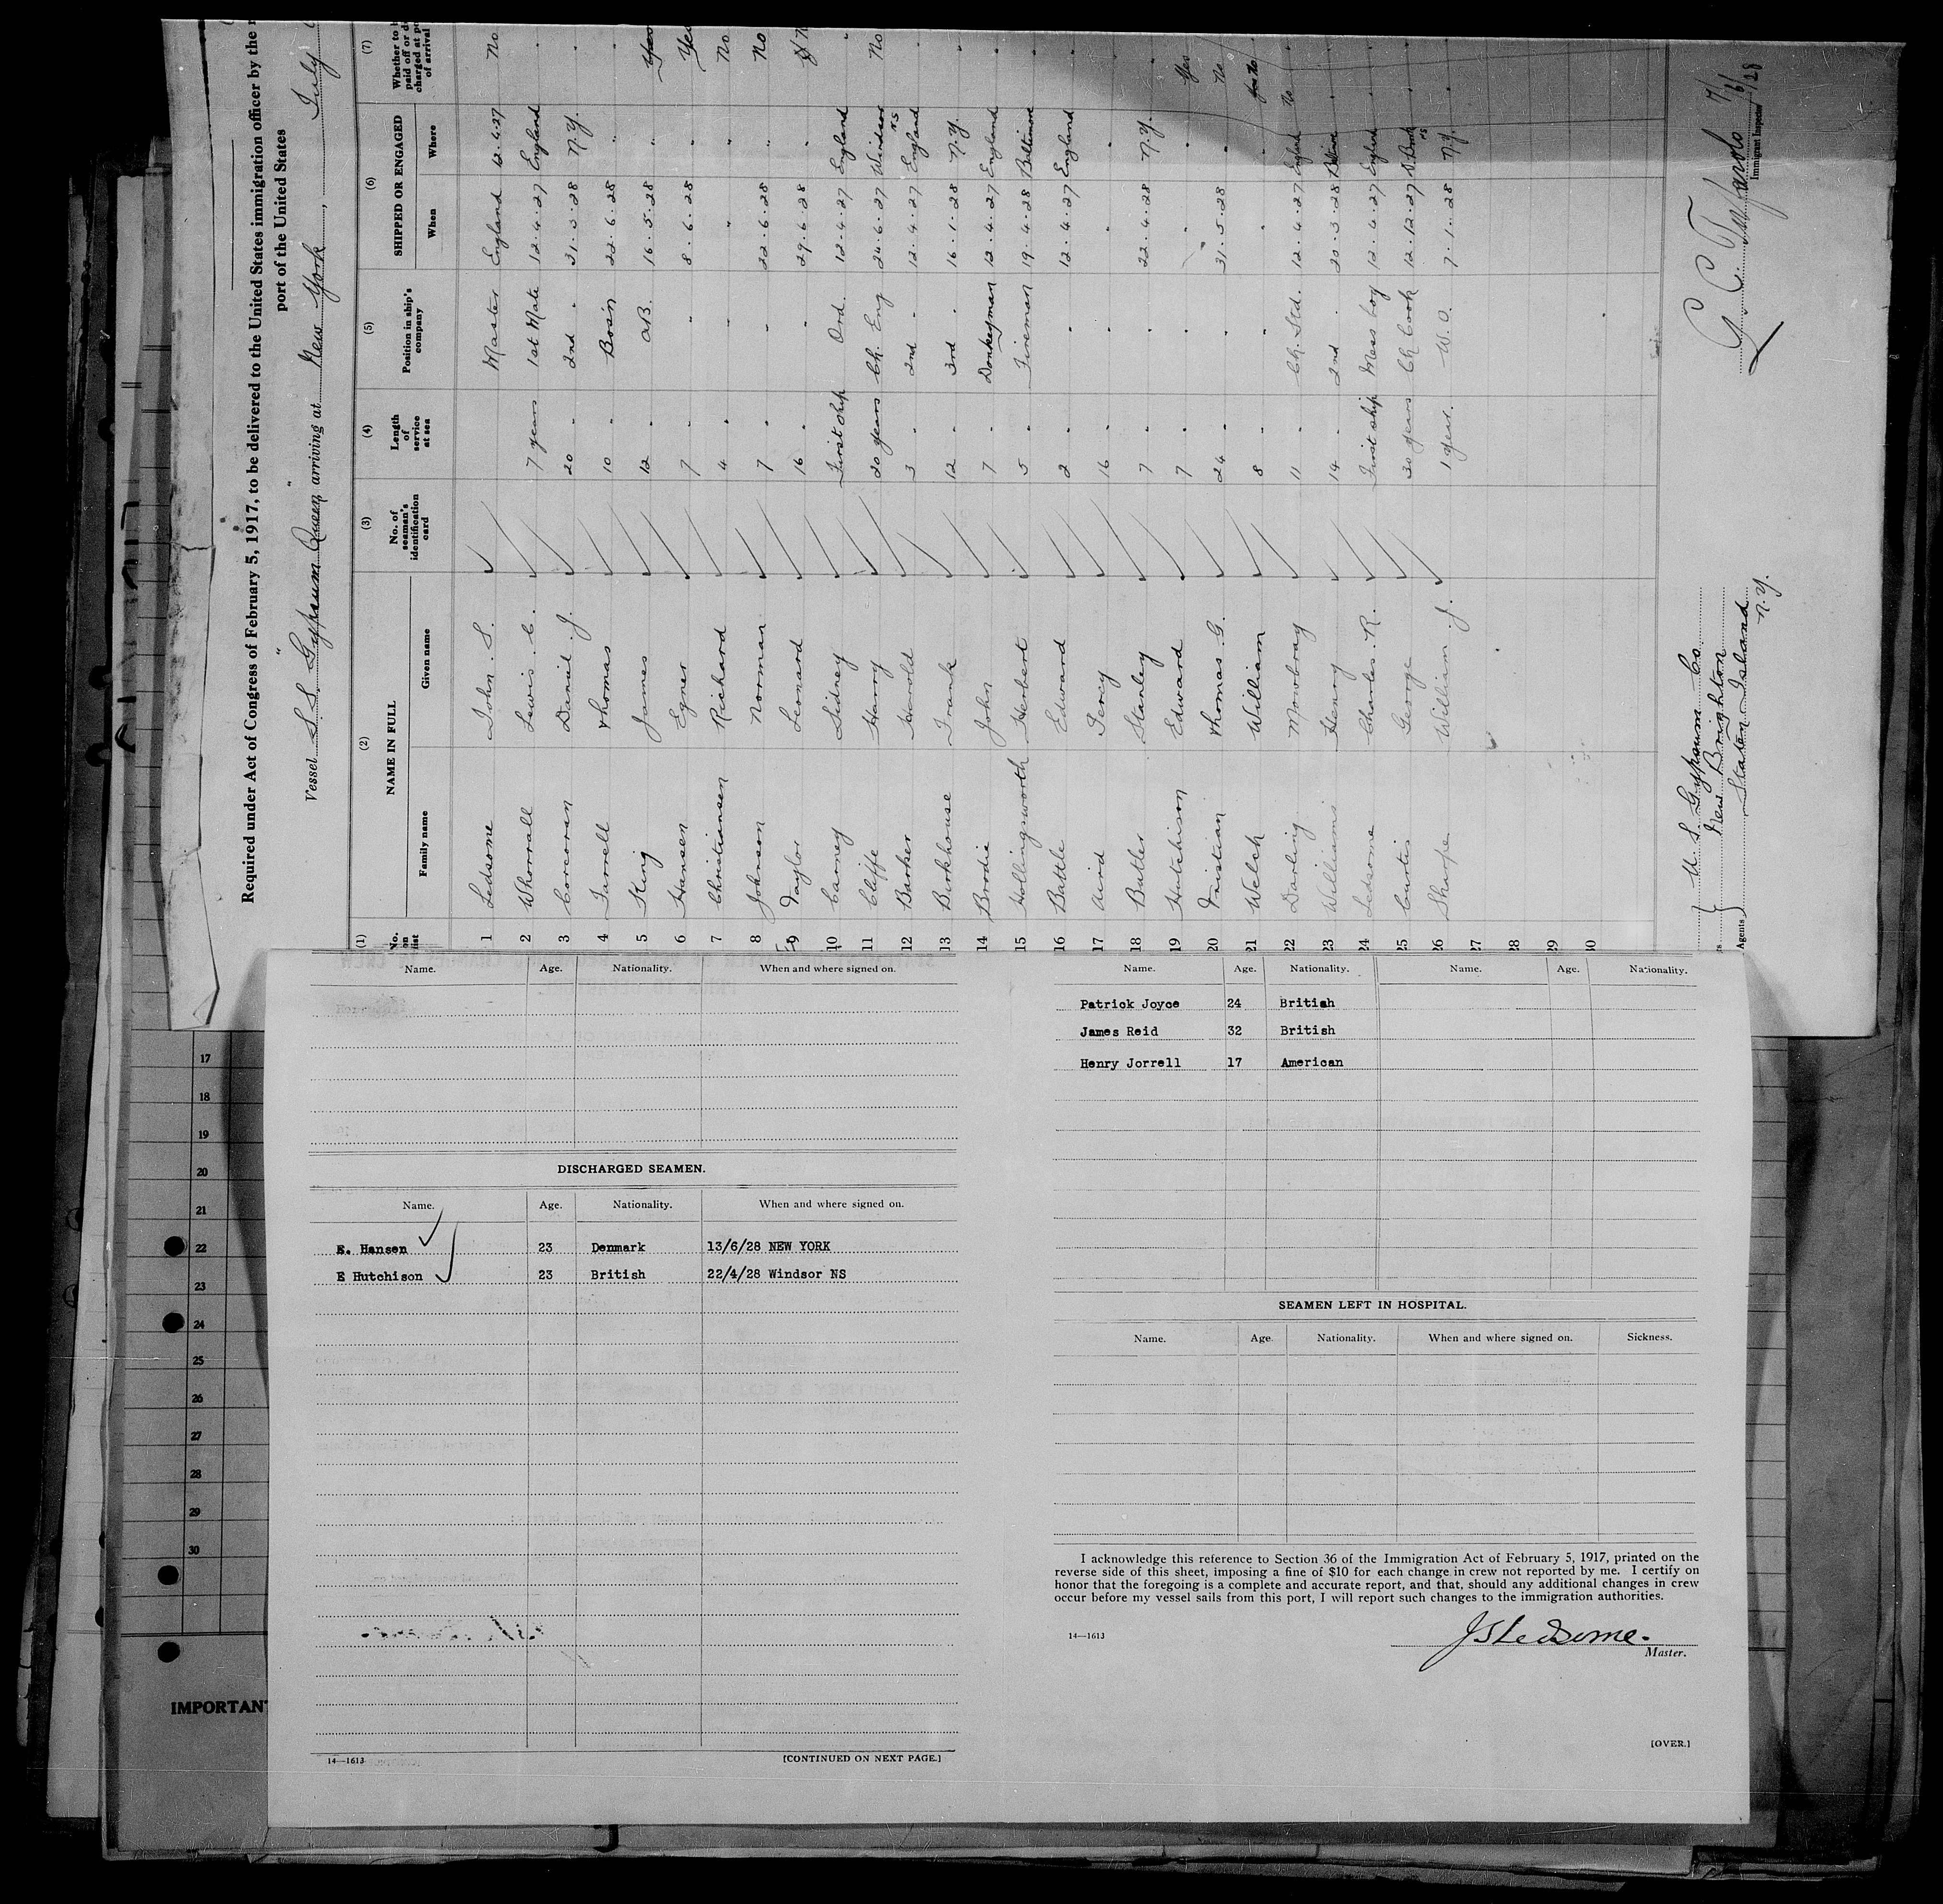 Required under Act of Congress of February 5, 1917, to be delivered to the United States immigration officer by the
port of the United States
Vessel S.S. "Gypsum Queen" arriving at New York, July
(1) (2) (3) (4) (5) (6) (7)
No. on list NAME IN FULL No. of seaman's identification card Length of service at sea Position in ship's company SHIPPED OR ENGAGED Whether to
paid off or
charged at
of arrival
Family name Given name When Where
1 Ledsome John. S. Master England 12.4.27 No
2 Whorrall Lewis. C. 7 years 1st Mate 12.4.27 England "
3 Corcoran Daniel. J. 20 " 2nd " 31.3.28 N.Y. "
4 Farrell Thomas 10 " Bosin 22.6.28 " "
5 King James 12 " A.B. 16.5.28 " Yes
6 Hansen Egner 7 " " 8.6.28 " Yes
7 Christiansen Richard 4 " " " " No
8 Johnson Norman 7 " " 22.6.28 " No
9 Taylor Leonard 16 " " 29.6.28 "
10 Carney Sidney First Ship Ord. 12.4.27 England "
11 Cliffe Harry 20 years Ch. Eng 24.6.27 Windsor N.S No
12 Barker Harold 3 " 2nd " 12.4.27 England "
13 Birkhouse Frank 12 " 3rd " 16.1.28 N.Y. "
14 Brodie John 7 " Donkeyman 12.4.27 England "
15 Hollingsworth Herbert 5 " Fireman 19.4.28 Baltimore "
16 Battle Edward 2 " " 12.4.27 England "
17 Aird Percy 16 " " "
18 Butler Stanley 7 " " 22.4.28 N.Y. "
19 Hutchison Edward 7 " " " " Yes
20 Tristian Thomas. G. 24 " " 31.5.28 " No
21 Welch William 8 " " " " No
22 Darling Mowbray 11 " Ch. Std. 12.4.27 England No
23 Williams Henry 14 " 2nd " 20.3.28 Baltimore "
24 Ledsome Charles. R. First ship Mess boy 12.4.27 England "
25 Curtis George 30 years Ch Cook 12.12.27 "
26 Sharpe William. J. 1 year. W.O. 7.1.28 N.Y. "
27
28
29
30
U. S. Gypsum Co.
New Brighton
Agents Staten Island
N.Y.
Immigrant Inspector
Name. Age. Nationality. When and where signed on.
DISCHARGED SEAMEN.
Name. Age. Nationality. When and where signed on.
E. Hansen 23 Denmark 13/6/28 NEW YORK
E Hutchison 23 British 22/4/28 Windsor NS
14—1613 [CONTINUED ON NEXT PAGE.]
Name. Age. Nationality. Name. Age. Nationality.
Patrick Joyce 24 British
James Reid 32 British
Henry Jorrell 17 American
SEAMEN LEFT IN HOSPITAL.
Name. Age. Nationality. When and where signed on. Sickness.
I acknowledge this reference to Section 36 of the Immigration Act of February 5, 1917, printed on the
reverse side of this sheet, imposing a fine of $10 for each change in crew not reported by me. I certify on
honor that the foregoing is a complete and accurate report, and that, should any additional changes in crew
occur before my vessel sails from this port, I will report such changes to the immigration authorities.
14—1613
JSLedsome.
Master.
[OVER.]
17
18
19
20
21
22
23
24
25
26
27
28
29
30
IMPORTANT